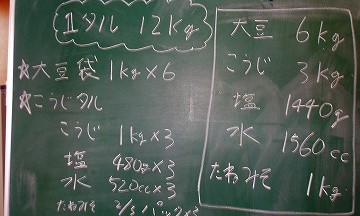 1タル 12Kg
☆大豆袋 1kg×6
☆こうじタル
こうじ 1kg×3
塩 480g×3
水 520cc×3
たねみそ 2/3パック×3
大豆 6kg
こうじ 3kg
塩 1440g
水 1560cc
たねみそ 1kg